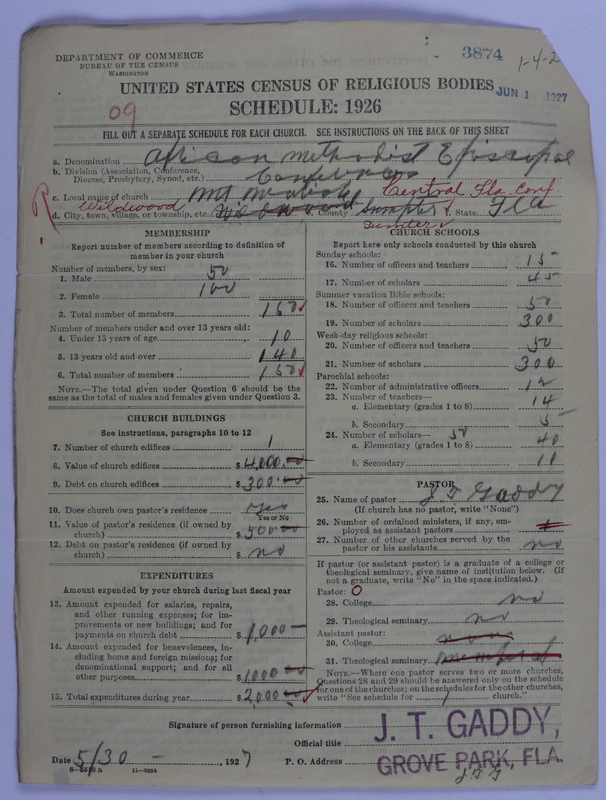 3874
1-4-2
DEPARTMENT OF COMMERCE
BUREAU OF THE CENSUS
WASHINGTON
UNITED STATES CENSUS OF RELIGIOUS BODIES
JUN 1 1927
SCHEDULE: 1926
09
FILL OUT A SEPARATE SCHEDULE FOR EACH CHURCH. SEE INSTRUCTIONS ON THE BACK OF THIS SHEET
a. Denomination African Methodist Episcopal
b. Division (Association, Conference, Diocese, Presbytery, Synod, etc.) Conference
Central Fla Conf.
c. Local name of church Mt
R
Wildwood
d. City, town, village, or township, etc. County Sumpter State Fla
Sumter
MEMBERSHIP
Report number of members according to definition of member in your church
Number of members, by sex:
1. Male 50
2. Female 100
3. Total number of members 150
Number of members under and over 13 years old:
4. Under 13 years of age 10
5. 13 years old and over 140
6. Total number of members 150
NOTE.—The total given under Question 6 should be the same as the total of males and females given under Question 3.
CHURCH BUILDINGS
See instructions, paragraphs 10 to 12
7. Number of church edifices 1
8. Value of church edifices $4,000.00
9. Debt on church edifices $300.00
10. Does church own pastor's residence? Yes
Yes or No
11. Value of pastor's residence (if owned by church) $500.00
12. Debt on pastor's residence (if owned by church) $ no
EXPENDITURES
Amount expended by your church during last fiscal year
13. Amount expended for salaries, repairs, and other running expenses; for improvements or new buildings; and for payments on church debt $1,000
14. Amount expended for benevolences, including home and foreign missions; for denominational support; and for all other purposes $1000 00
15. Total expenditures during year $2,000.00
CHURCH SCHOOLS
Report here only schools conducted by this church
Sunday schools:
16. Number of officers and teachers 15
17. Number of scholars 45
Summer vacation Bible schools:
18. Number of officers and teachers 50
19. Number of scholars 300
Week-day religious schools:
20. Number of officers and teachers 50
21. Number of scholars 300
Parochial schools:
22. Number of administrative officers 12
23. Number of teachers—
a. Elementary (grades 1 to 8) 14
b. Secondary 5
24. Number of scholars— 50
a. Elementary (grades 1 to 8) 40
b. Secondary 10
PASTOR
25. Name of pastor J T Gaddy
(If church has no pastor, write "None")
26. Number of ordained ministers, if any, employed as assistant pastors
27. Number of other churches served by the pastor or his assistants no
If pastor (or assistant pastor) is a graduate of a college or theological seminary, give name of institution below. (If not a graduate, write "No" in the space indicated.)
Pastor: O
28. College no
29. Theological seminary no
Assistant pastor:
30. College none
31. Theological seminary
NOTE.—Where one pastor serves two or more churches, Questions 28 and 29 should be answered only on the schedule for one of the churches; on the schedules for the other churches, write "See schedule for church."
Signature of person furnishing information
Official title
J. T. GADDY,
GROVE PARK, FLA.
Date 5/30, 1927
P. O. Address
JTG
11—9684